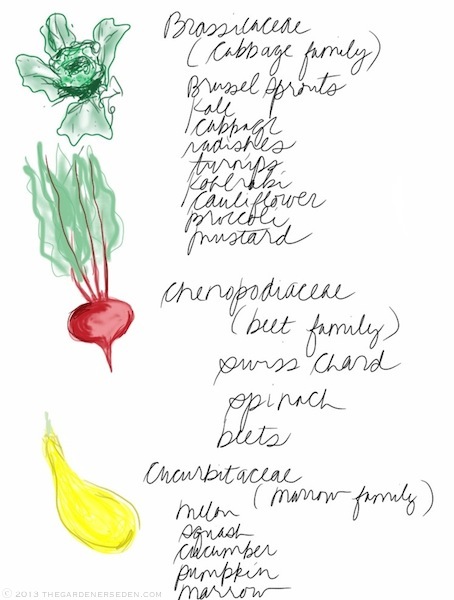 Brassicaceae
(cabbage family)
Brussel sprouts
Kale
cabbage
radishes
turnips
kohlrabi
cauliflower
Broccoli
mustard
Chenopodiaceae
(beet family)
swiss chard
spinach
beets
Cucurbitaceae
(marrow family)
melon
squash
cucumber
pumpkin
marrow
© 2013 THEGARDENERSEDEN.COM